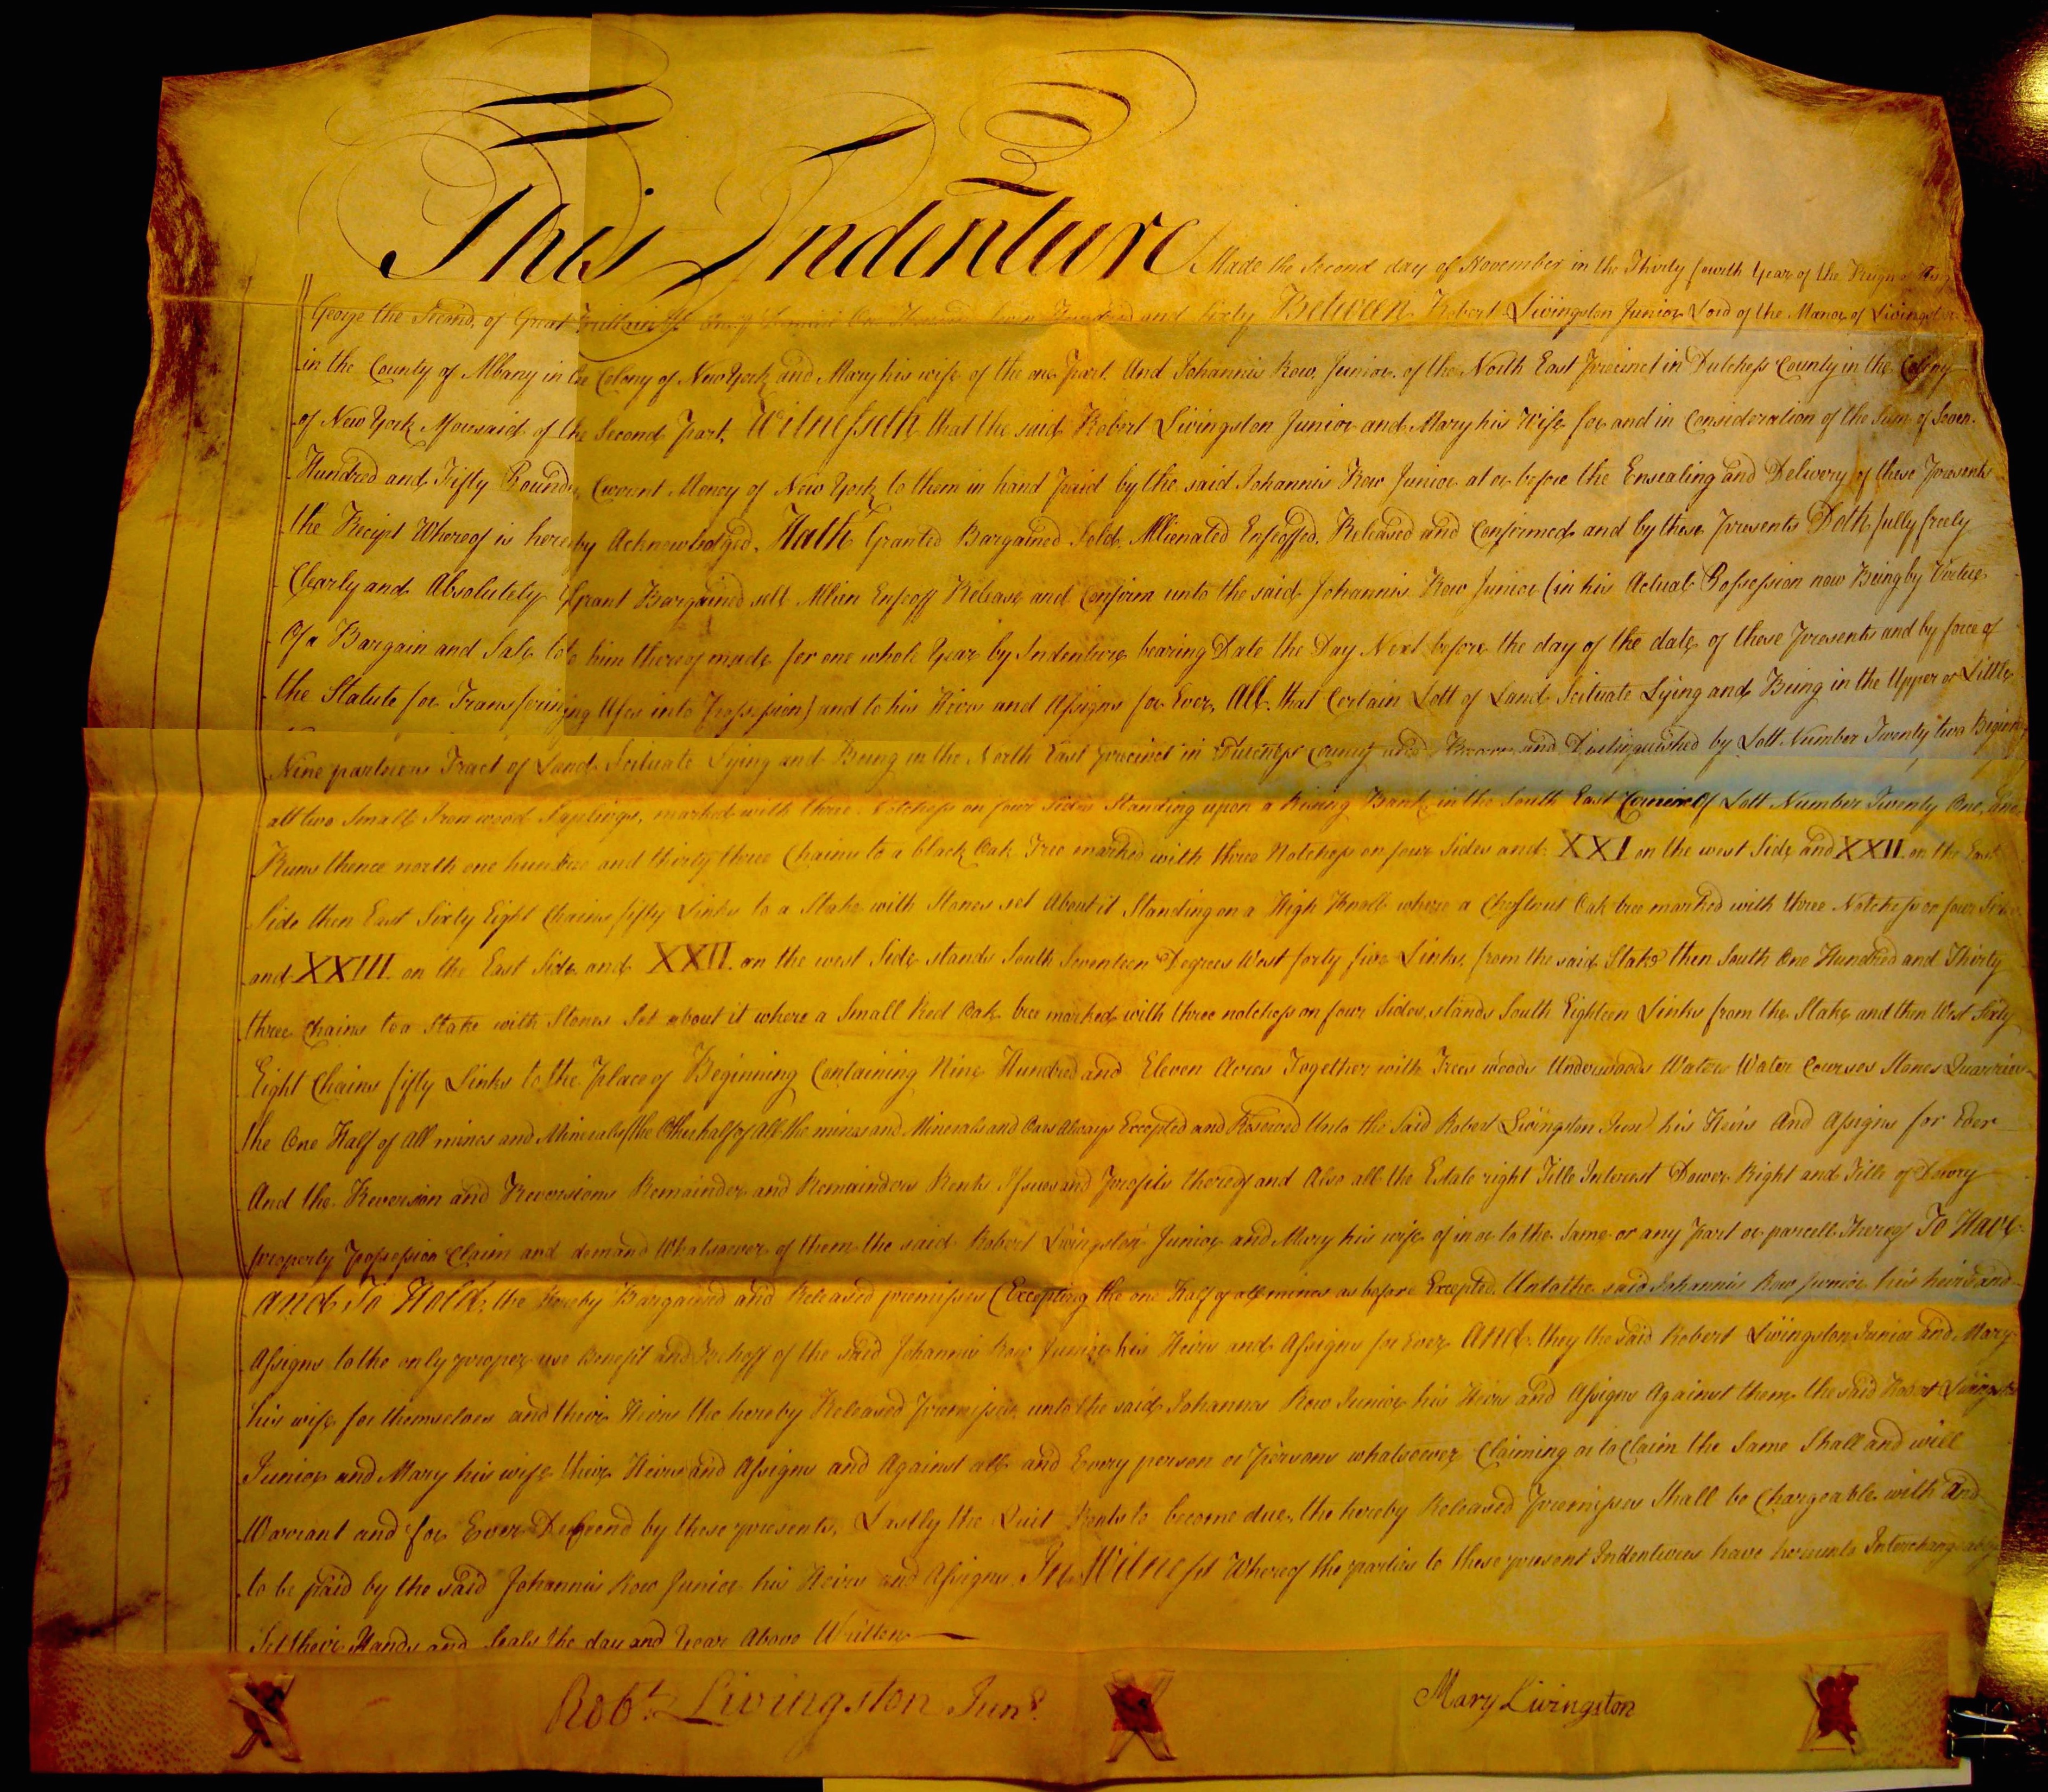 This Indenture Made the Second day of November in the Thirty fourth Year of the Reign of King
George the Second, of Great Brittain &c Anno Domini One Thousand Seven Hundred and Sixty Between Robert Livingston Junior Lord of the Manor of Livingston
in the County of Albany in the Colony of New York and Mary his wife of the one Part. And Johannis Row Junior of the North East Precinct in Dutchess County in the Colony
of New York Aforesaid of the Second Part, Witnesseth that the said Robert Livingston Junior and Mary his Wife for and in Consideration of the Sum of Seven
Hundred and Fifty Pounds Current Money of New York to them in hand Paid by the said Johannis Row Junior at or before the Ensealing and Delivery of these Presents
the Receipt Whereof is hereby Acknowledged, Hath Granted Bargained Sold Allienated Enfeoffed Released and Confirmed and by these Presents Doth fully freely
Clearly and Absolutely Grant Bargained sell Allien Enfeoff Release and Confirm unto the said Johannis Row Junior (in his Actual Possession now Being by Virtue
Of a Bargain and Sale to him thereof made for one whole Year by Indenture bearing Date the Day Next before the day of the date of these Presents and by force of
the Statute for Transfering Uses into Possession) and to his Heirs and Assigns for Ever, All that Certain Lott of Land Scituate Lying and Being in the Upper or Little
Nine partners Tract of Land Scituate Lying and Being in the North East Precinct in Dutchess County and Known and Distinguished by Lott Number Twenty two Begining
att two Small Iron wood Saplings, marked with three Notches on four Sides Standing upon a Rising Bank in the South East Corner of Lott Number Twenty One, and
Runs thence north one hundred and thirty three Chains to a black Oak Tree marked with three Notches on four Sides and XXI on the west Side and XXII on the East
Side then East Sixty Eight Chains fifty Links to a Stake with Stones set About it Standing on a High Knoll where a Chestnut Oak tree marked with three Notches on four Sides
and XXIII on the East Side and XXII on the west Side stands South Seventeen Degrees West forty five Links from the said Stake then South One Hundred and Thirty
three Chains to a Stake with Stones Set about it where a Small Red Oak tree marked with three notches on four Sides stands South Eighteen Links from the Stake and then West Sixty
Eight Chains fifty Links to the Place of Beginning Containing Nine Hundred and Eleven Acres Together with Trees woods Underwoods Waters Water Courses Stones Quarries
the One Half of all mines and Minerals (the Other half of All the mines and Minerals and Oars Always Excepted and Reserved Unto the Said Robert Livingston Junr his Heirs And Assigns for Ever
And the Reversion and Reversions Remainder and Remainders Rents Issues and Profits thereof and Also all the Estate right Title Interest Dower Right and Title of Dowry
property Possession Claim and demand Whatsoever of them the said Robert Livingston Junior and Mary his wife of in or to the Same or any Part or parcell Thereof To Have
and To Hold the hereby Bargained and Released premisses (Excepting the one Half of all mines as before Excepted Unto the said Johannis Row Junior his heirs and
Assigns to the only proper use Benefit and Behoff of the said Johannis Row Junior his Heirs and Assigns for Ever And they the said Robert Livingston Junior and Mary
his wife for themselves and their Heirs the hereby Released Premisses unto the said Johannis Row Junior his Heirs and Assigns Against them the said Robert Livingston
Junior and Mary his wife their Heirs and Assigns and Against all and Every person or Persons whatsoever Claiming or to Claim the Same Shall and will
Warrant and for Ever Deffend by these presents, Lastly the Quit Rents to become due, the hereby Released Premisses Shall be Chargeable with And
to be paid by the said Johannis Row Junior his Heirs and Assigns In Witness Whereof the parties to these present Indentures have hereunto Interchangeably
Set their Hands and Seals the day and Year Above Written
Robt. Livingston Junr.
Mary Livingston